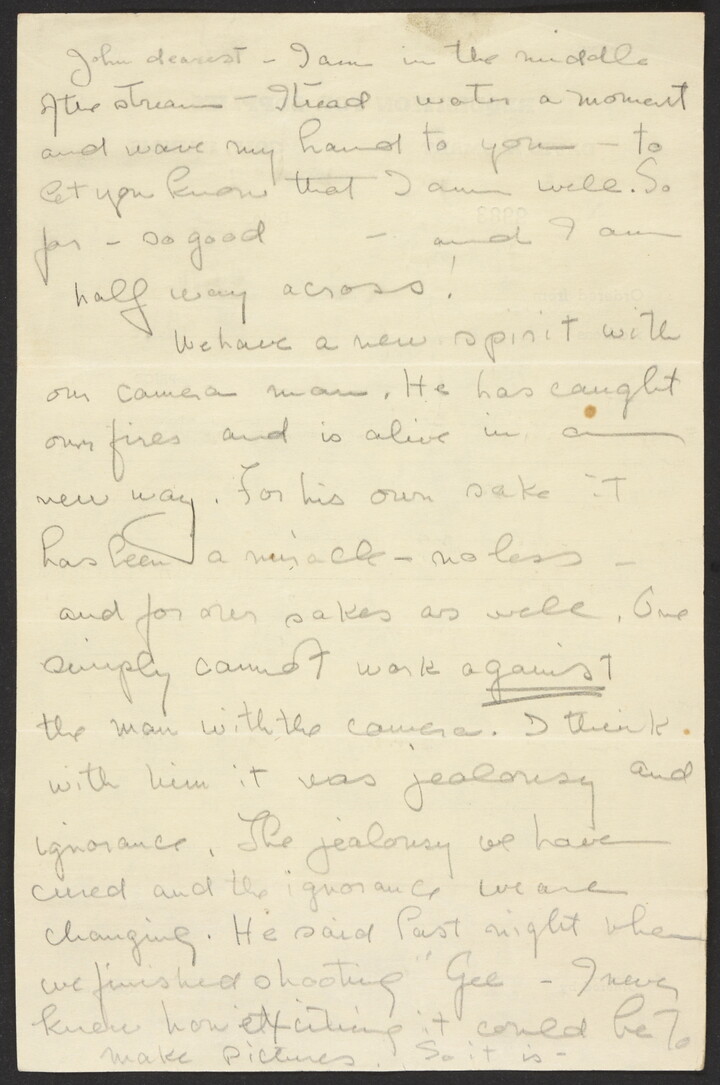 John dearest - I am in the middle
of the stream - I tread water a moment
and wave my hand to you - to
let you know that I am well. So
far - so good - and I am
half way across!
We have a new spirit with
our camera man. He has caught
our fires and is alive in a
new way. For his own sake it
has been a miracle - no less -
and for our sakes as well. One
simply cannot work against
the man with the camera. I think
with him it was jealousy and
ignorance. The jealousy we have
cured and the ignorance we are
changing. He said last night when
we finished shooting "Gee - I never
knew how exciting it could be to
make pictures. So it is -